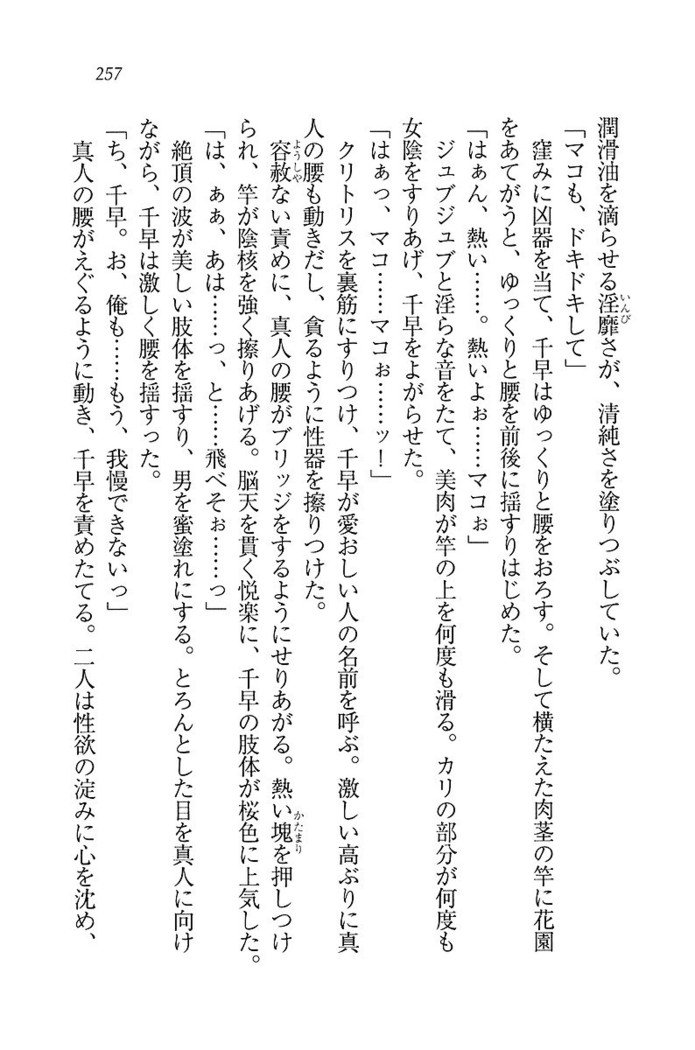 257
潤滑油を滴らせる淫靡さが、清純さを塗りつぶしていた。
いんび
「マコも、ドキドキして」
窪みに凶器を当て、千早はゆっくりと腰をおろす。そして横たえた肉茎の竿に花園
をあてがうと、ゆっくりと腰を前後に揺すりはじめた。
「はぁん、熱い……。熱いよぉ……マコぉ」
ジュブジュブと淫らな音をたて、美肉が竿の上を何度も滑る。カリの部分が何度も
女陰をすりあげ、千早をよがらせた。
「はぁっ、マコ……マコぉ……ッ！」
クリトリスを裏筋にすりつけ、千早が愛おしい人の名前を呼ぶ。激しい高ぶりに真
人の腰も動きだし、貪るように性器を擦りつけた。
容赦ない責めに、真人の腰がブリッジをするようにせりあがる。熱い塊を押しつけ
ようしゃ
かたまり
られ、竿が陰核を強く擦りあげる。脳天を貫く悦楽に、千早の肢体が桜色に上気した。
「は、ぁぁ、あは……っ、と……飛べそぉ……っ」
絶頂の波が美しい肢体を揺すり、男を蜜塗れにする。とろんとした目を真人に向け
ながら、千早は激しく腰を揺すった。
「ち、千早。お、俺も……もう、我慢できないっ」
真人の腰がえぐるように動き、千早を責めたてる。二人は性欲の淀みに心を沈め、